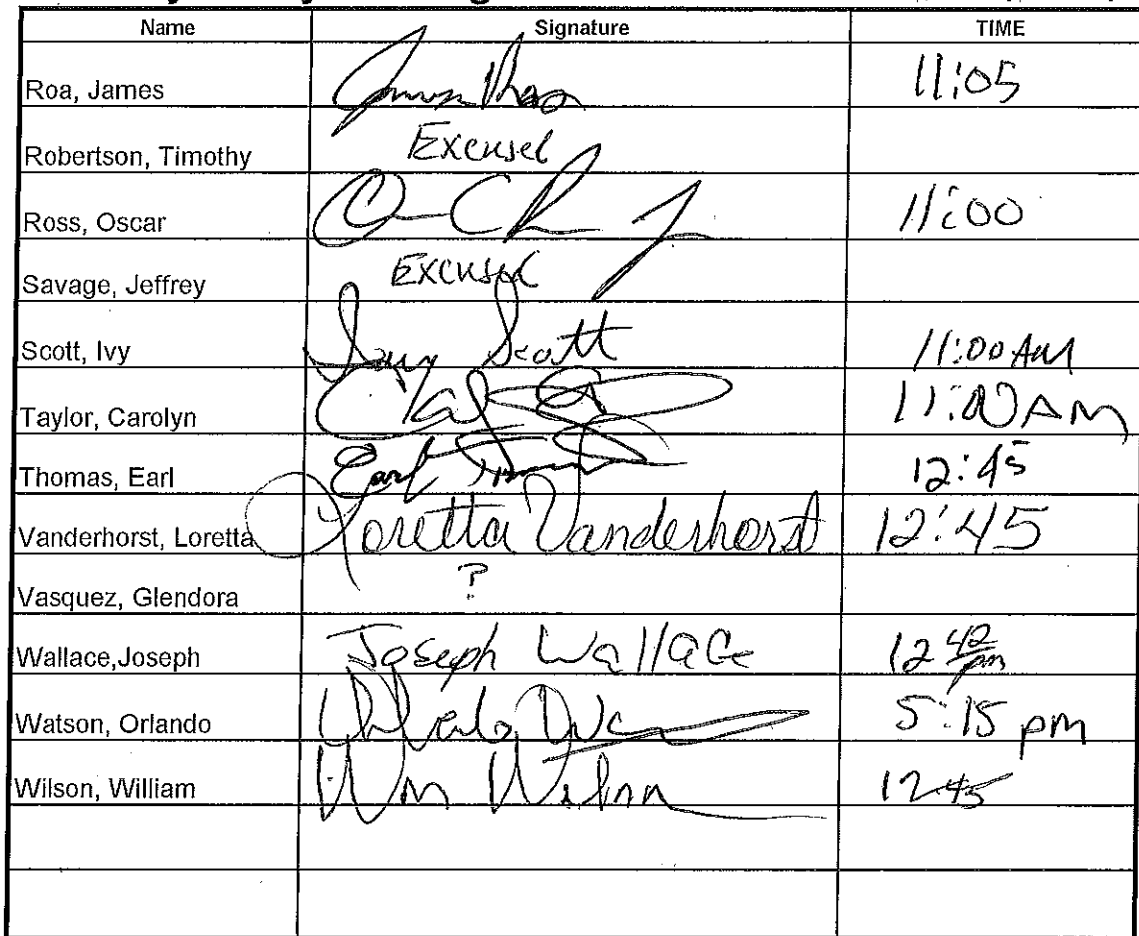 Name Signature TIME
Roa, James James Roa 11:05
Robertson, Timothy Excused
Ross, Oscar 11:00
Savage, Jeffrey Excused
Scott, Ivy Ivy Scott 11:00 AM
Taylor, Carolyn 11:00 AM
Thomas, Earl Earl Thomas 12:45
Vanderhorst, Loretta Loretta Vanderhorst 12:45
Vasquez, Glendora ?
Wallace,Joseph Joseph Wallace 12 42 pm
Watson, Orlando 5:15 pm
Wilson, William Wm Wilson 12 45